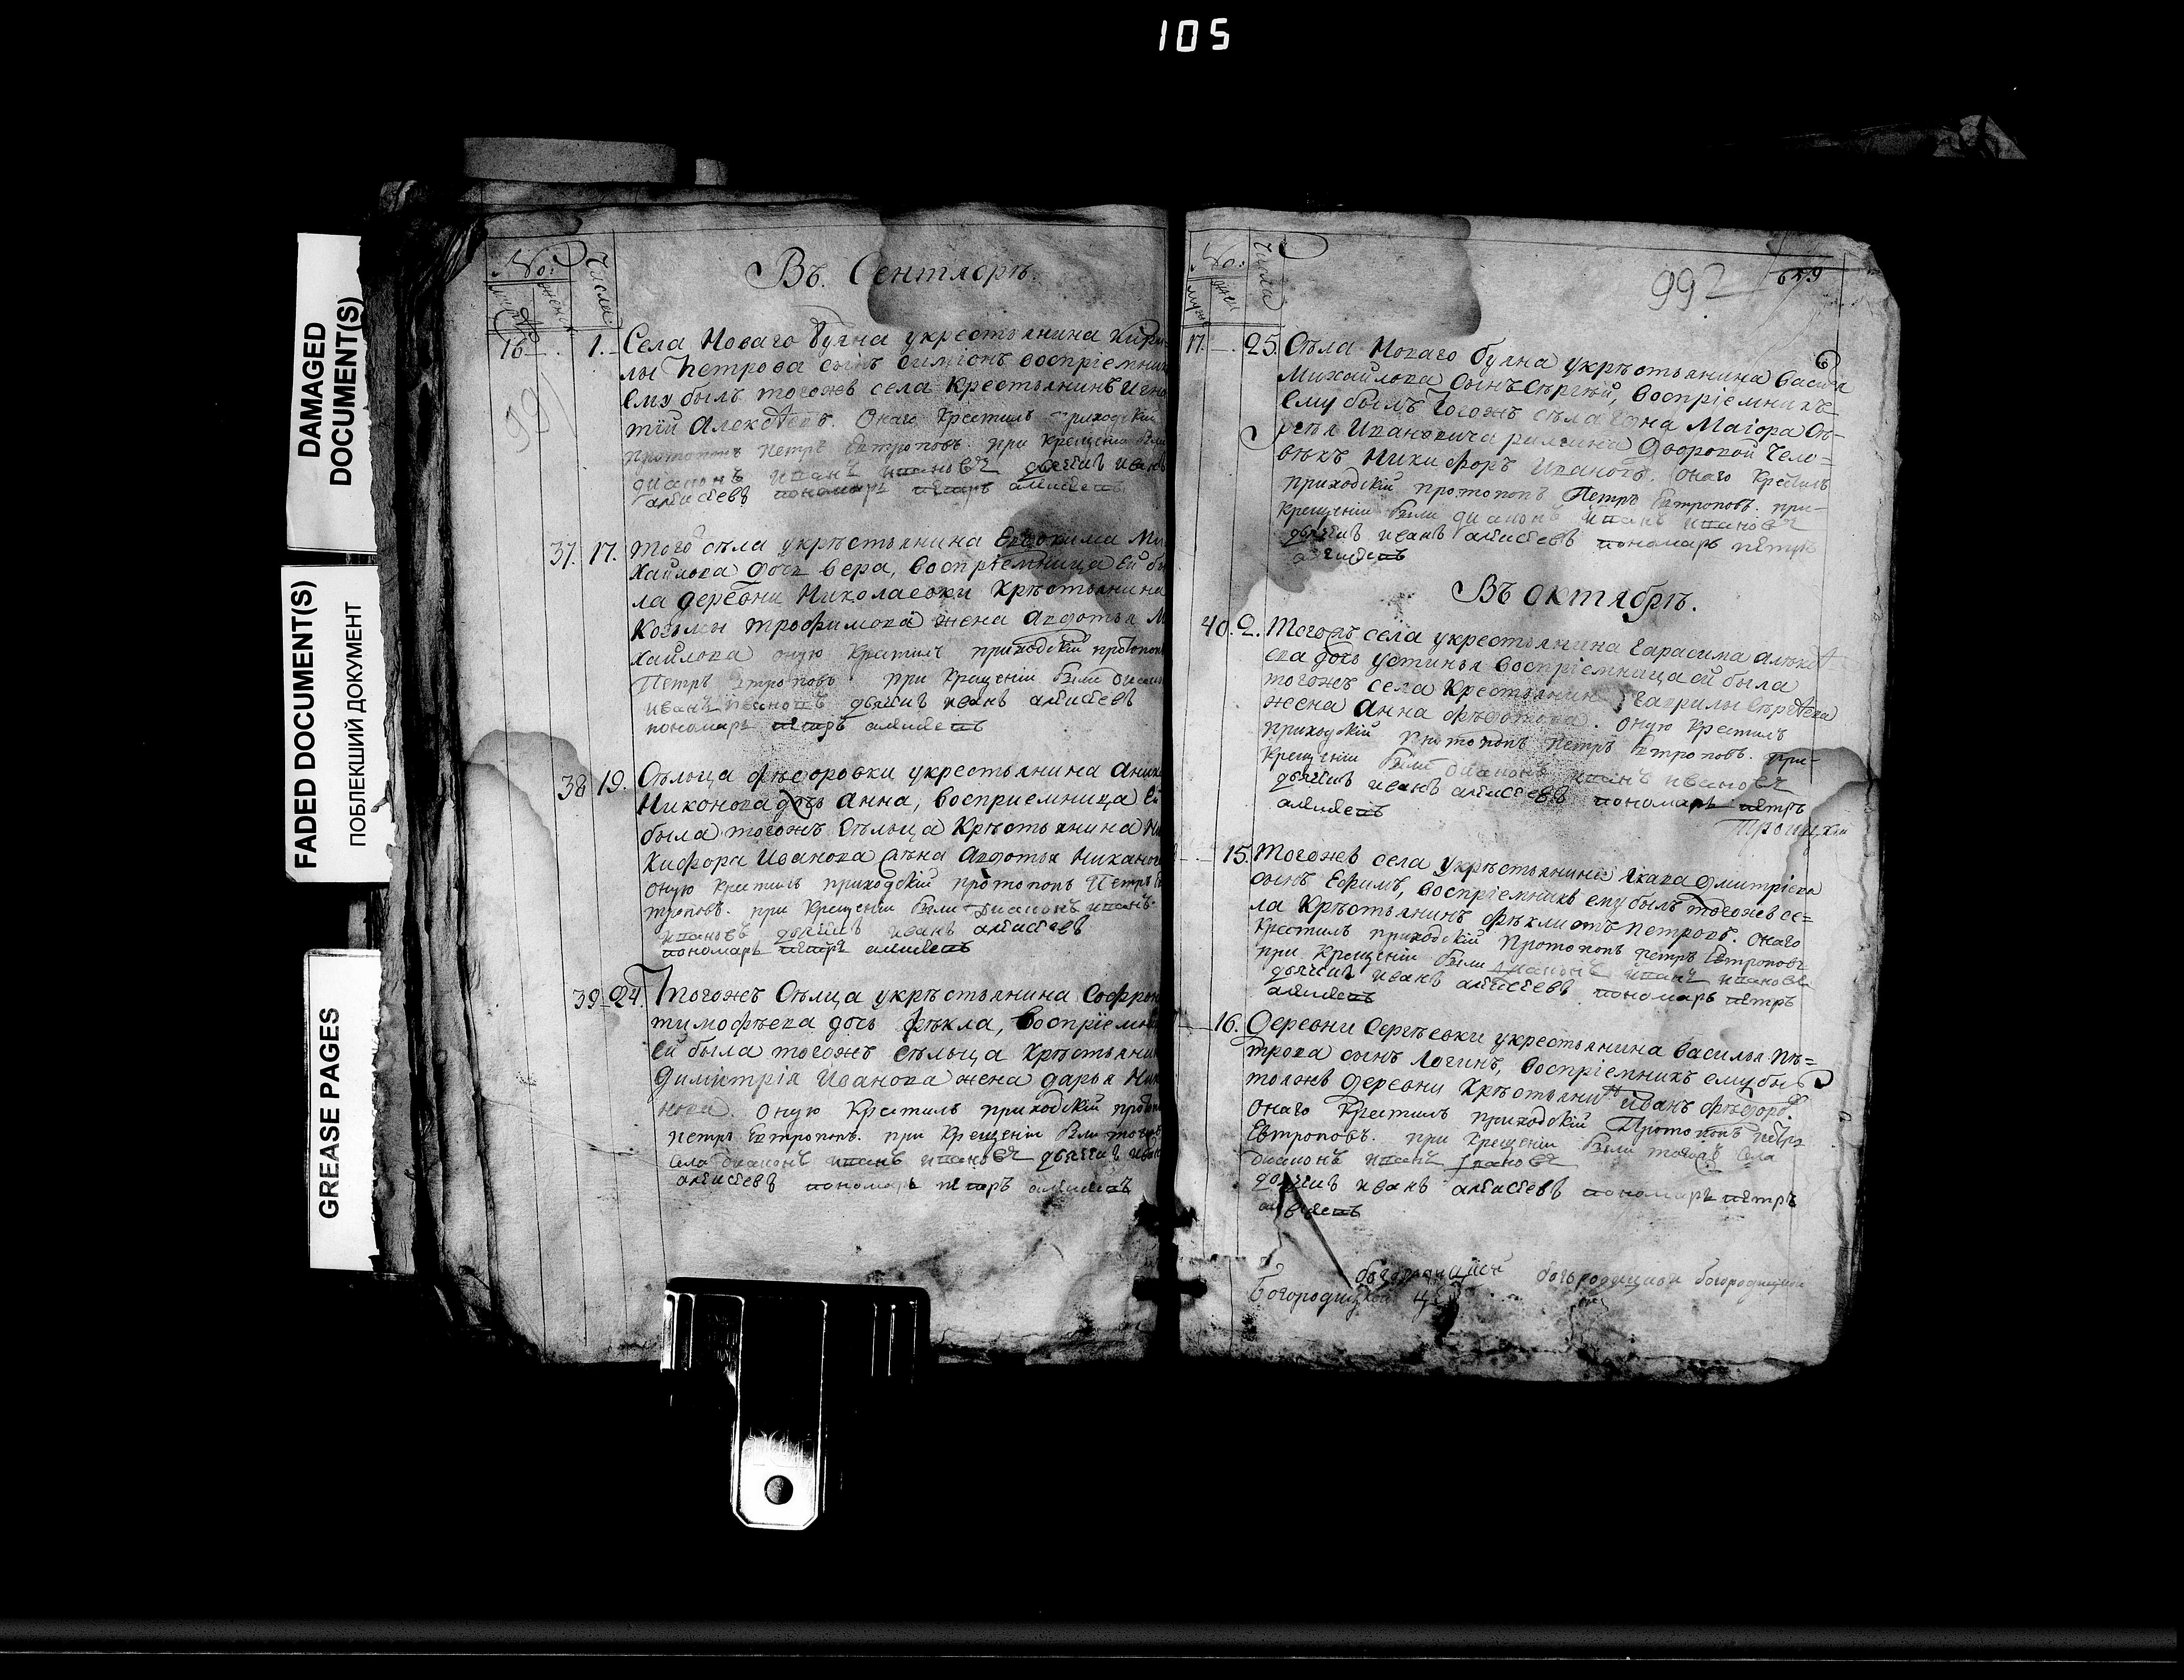 105
DAMAGED
DOCUMENT(S)
FADED DOCUMENT(S)
ПОБЛЕКШИЙ ДОКУМЕНТ
GREASE PAGES
No:
Числа
Въ Сентябрѣ.
991
16. 1. Села Новаго Буяна укрестьянина Кири
лы Петрова сынъ Симіонъ воспріемник
ему былъ тогожъ села крестьянинъ Игна
тій Алексѣевъ. Онаго крестилъ приходскій
протопопъ Петръ Евтроповъ. при крещеніи были
диаконъ иванъ ивановъ дьячиов иванъ
алексеевъ пономарь петръ алексеевъ
37. 17. Того сѣла укрѣстьянина Евдокима Ми
хайлова дочь вера, воспріемница ей бы
ла деревни Николаевки крѣстьянина
Козьмы трофимова жена Авдотья М
хайлова оную крестилъ приходскій протопопъ
Петръ Евтроповъ. при крещеніи были диакон
иванъ ивановъ дьячиов иванъ алексеевъ
пономарь петръ алексеевъ
38 19. Сѣльца фѣдоровки укрестьянина Аник
Никонова дочь Анна, восприемница ей
была тогожъ сѣльца крѣстьянина Ни
кифора Иванова жѣна Авдотья Никано
оную крестилъ приходскій протопопъ Петръ Ев
троповъ. при крещеніи были диаконъ иванъ
ивановъ дьячиов иванъ алексеевъ
пономарь петръ алексеевъ
39 24. Тогожъ Сѣлца укрѣстьянина Софрон
тимофѣева дочь фѣкла, воспріемни
ей была тогожъ сѣльца крѣстьяни
Димитрія Иванова жена дарья Ник
нова. оную крестилъ приходскій протопо
петръ Евтроповъ. при крещеніи были тогожъ
села диаконъ иванъ ивановъ дьячиов иван
алексеевъ пономарь петръ алексеевъ
No:
Числа
992
659
17. 25. Сѣла Новаго буяна укрѣстьянина Васил
Михайлова сынъ Сѣргѣй, воспріемникъ
ему былъ тогожъ сѣла Гдна Маіора
Ивановича дворовой чело=
вѣкъ Никифоръ Ивановъ. онаго крестилъ
приходскій протопопъ Петръ Евтроповъ. при-
крещеніи были диаконъ иванъ ивановъ
дьячиов иванъ алексеевъ пономарь петръ
алексеевъ
Въ октябрѣ.
40. 2. Тогожъ села укрестьянина Гарасима алѣксѣ
ева дочь устинья воспріемница ей была
тогожъ села крестьянин Гаврилы Сѣргѣева
жена Анна фѣдотова. оную крестилъ
приходскій протопопъ Петръ Евтроповъ. при-
крещеніи были диаконъ иванъ ивановъ
дьячиов иванъ алексеевъ пономарь петръ
алексеевъ
Троицкой
15. Тогожъ села укрѣстьянина Якава дмитріева
сынъ Ефимъ, воспріемникъ ему былъ тогожъ се=
ла крѣстьянинъ фѣклистъ петровъ. онаго
крестилъ приходскій протопопъ петръ Евтроповъ
при крещеніи были диаконъ иванъ ивановъ
дьячиов иванъ алексеевъ пономарь петръ
алексеевъ
16. Деревни Сергѣевки укрестьянина Василья пѣ=
трова сынъ Логинъ, воспріемникъ ему бы
тогожъ деревни крѣстьянинъ Иванъ фѣдоров.
онаго крестилъ приходскій протопопъ петръ
Евтроповъ. при крещеніи были тогожъ села
диаконъ иванъ ивановъ
дьячиов иванъ алексеевъ пономарь петръ
алексеевъ
богородицкой богородицкой
Богородицкой